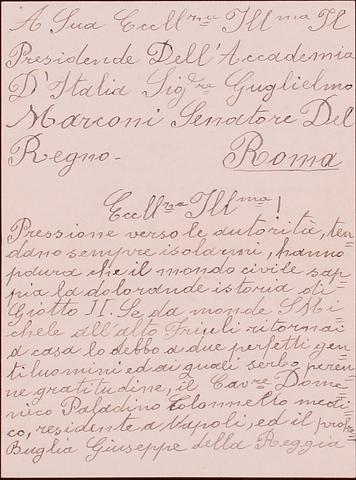 A Sua Eccll.nza Ill.ma Il
Presidende Dell'Accademia
D'Italia Sig.re Guglielmo
Marconi Senatore Del
Regno-
Roma
Eccll.nza Ill.ma!
Pressione verso le autorità, ten=
dano sempre isolarmi, hanno
paura che il mondo civile sap=
pia la dolorande istoria di
Giotto II. Se da monde S Mi=
chele all'alto Friuli ritornai
a casa lo debbo a due perfetti gen=
tiluomini ed ai quali serbo peren=
ne gratitudine, il Cav.re Dome=
nico Paladino Colonnello medi=
co, residente a Napoli, ed il prof.re
Buglia Giuseppe della Reggia